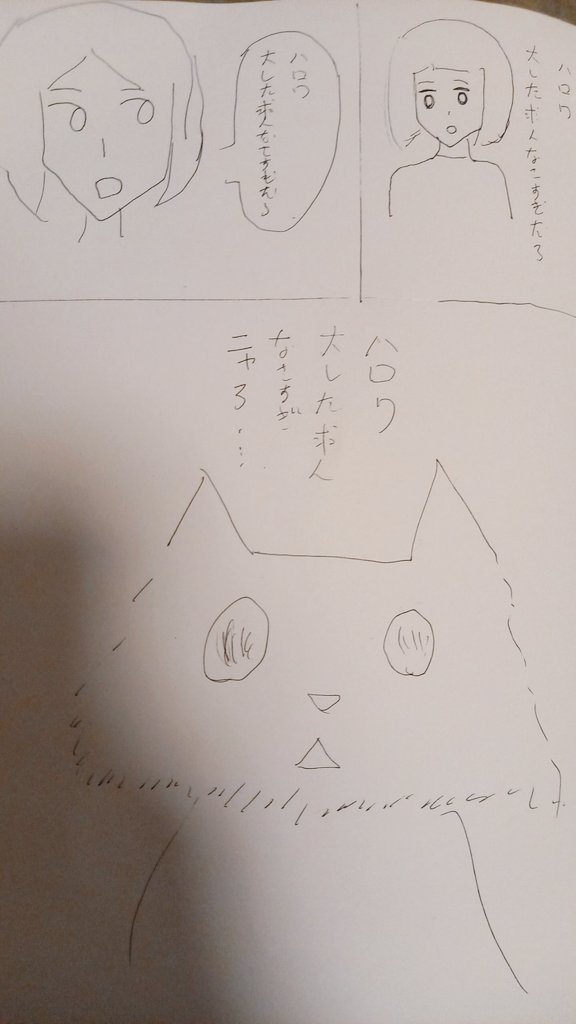 ハロワ
大した求人なこすぎだろ
ハロワ
大した求人なさすぎだろ
ハロワ
大した求人
なさすぎ
ニャろ……